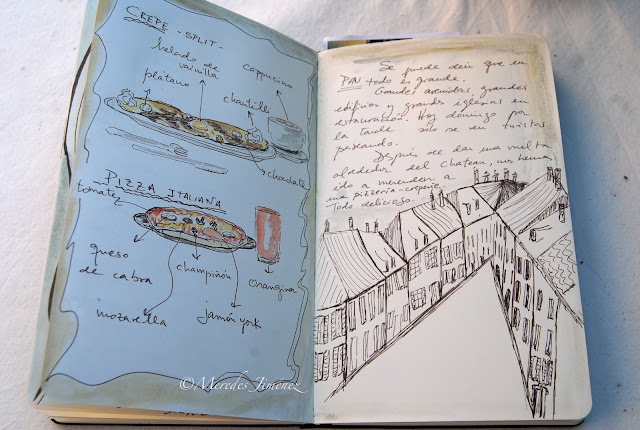 CREPE - SPLIT -
helado de
vainilla
platano
cappucino
chantilli
chocolate
PIZZA ITALIANA
tomate
queso
de cabra
champiñón
orangina
mozarella
jamón york
©Meredes Jiménez
Se puede decir que en
PAU todo es grande.
Grandes avenidas, grandes
edificios y grandes iglesias en
restauración. Hoy domingo por
la tarde solo se ven turistas
paseando.
Después de dar una vuelta
alrededor del Chateau, nos hemos
ido a merendar a
una pizzeria-creperie
Todo delicioso.